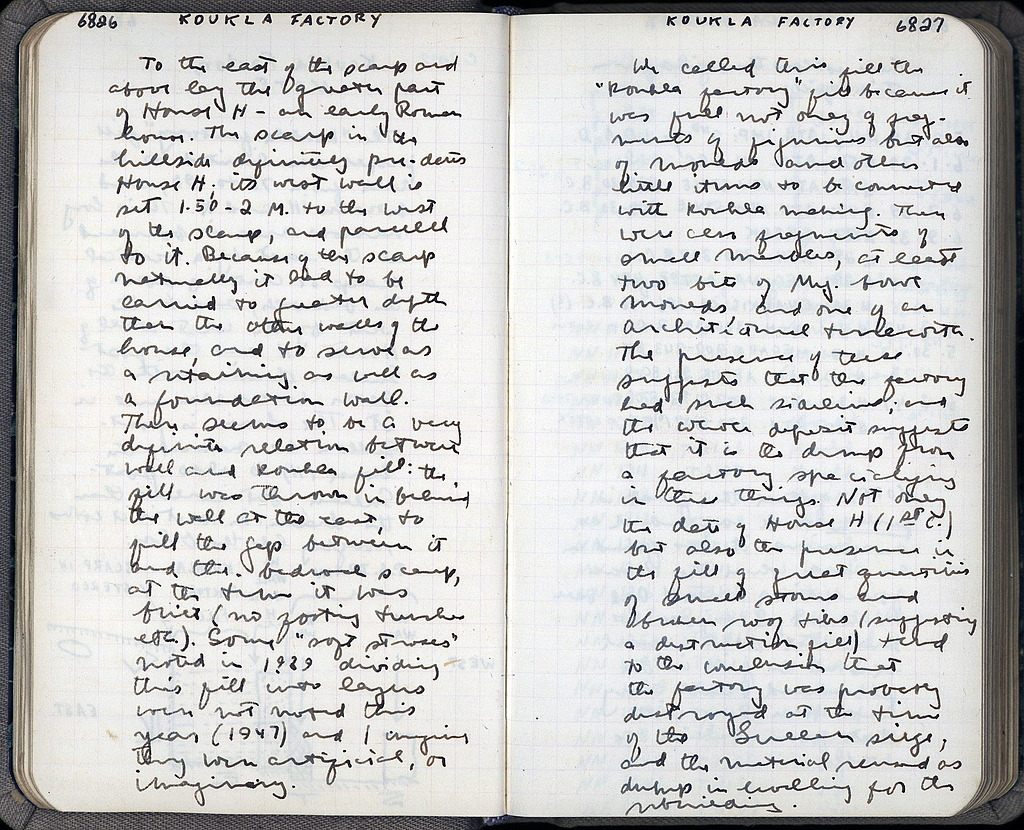 6826 KOUKLA FACTORY
To the east of the scarp and
above lay the greater part
of House H - an early Roman
house. The scarp in the
hillside definitely pre-dates
House H. its west wall is
set 1.50-2 M. to the west
of the scarp, and parallel
to it. Because of the scarp
naturally it had to be
carried to greater depth
than the other walls of the
house, and to serve as
a retaining as well as
a foundation wall.
There seems to be a very
definite relation between
wall and koukla fill: the
fill was thrown in behind
the wall at the east, to
fill the gap between it
and the bedrock scarp,
at the time it was
built (no footing trenches
etc.). Some "soft stroses"
noted in 1939 dividing
this fill into layers
were not noted this
year (1947) and I imagine
they were artificial, or
imaginary.
KOUKLA FACTORY 6827
We called this fill the
"koukla factory" fill because it
was full not only of frag-
ments of figurines but also
of moulds and other
little items to be connected
with koukla making. There
were also fragments of
small marbles, at least
two bits of Meg. bowl
moulds, and one of an
architectural terracotta.
The presence of these
suggests that the factory
had such sidelines; and
the whole deposit suggests
that it is the dump from
a factory specializing
in these things. Not only
the date of House H (1st C.)
but also the presence in
the fill of great quantities
of small stones and
broken roof tiles (suggesting
a destruction fill) tend
to the conclusion that
the factory was probably
destroyed at the time
of the Sullan siege,
and the material reused as
dump in levelling for the
rebuilding.